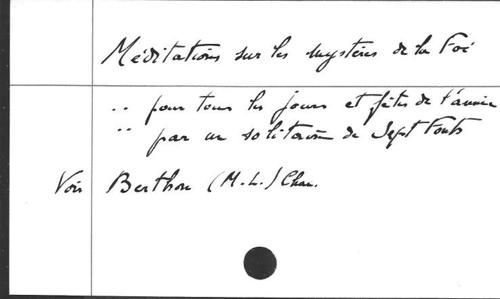 Méditations sur les mystères de la Foi
.. pour tous les jours et fêtes de l'année
.. par un solitaire de Sept Fonts
Voir Berthon (M.-L.) Chan.